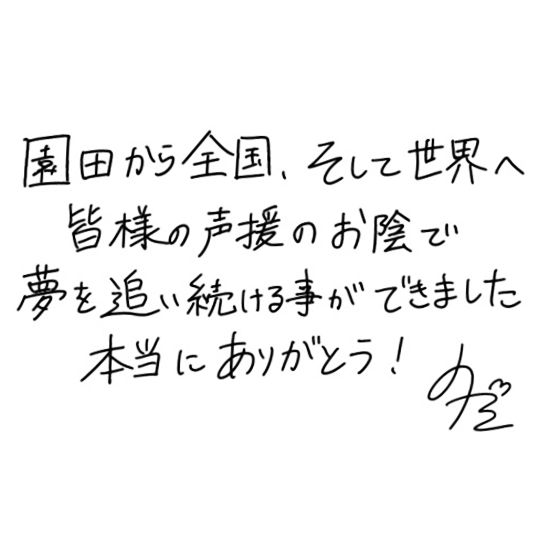 園田から全国、そして世界へ
皆様の声援のお陰で
夢を追い続ける事ができました
本当にありがとう!